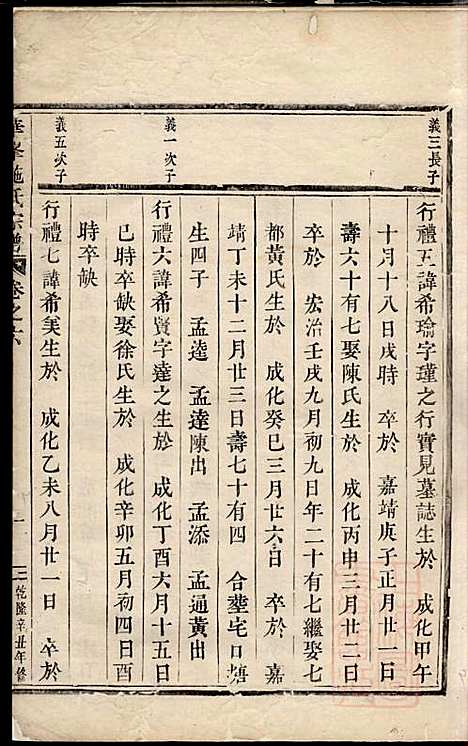 義三長子
行禮五諱希瑜字瑾之行實見墓誌生於 成化甲午
十月十八日戌時 卒於 嘉靖庚子正月廿一日
壽六十有七娶陳氏生於 成化丙申三月廿二日
卒於 宏治壬戌九月初九日年二十有七繼娶七
都黃氏生於 成化癸巳三月廿六日 卒於 嘉
靖丁未十二月廿三日壽七十有四 合塟宅口塘
生四子 孟逵 孟達陳出 孟添 孟通黃出
義一次子
行禮六諱希賢字達之生於 成化丁酉六月十五日
巳時卒缺娶徐氏生於 成化辛卯五月初四日酉
時卒缺
義五次子
行禮七諱希美生於 成化乙未八月廿一日 卒於
峯施氏宗譜 卷之六 一 乾隆辛丑年修